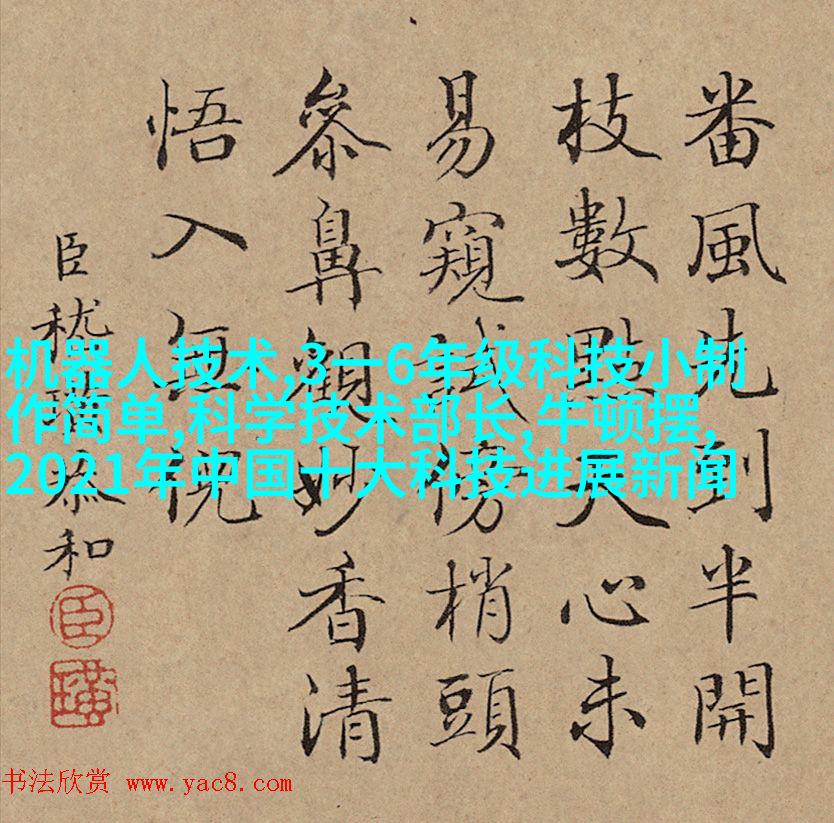 番風先到半開
枝數點天心未
易窺試傍梢頭
參鼻觀妙香清
悟入
臣嵇璜恭和
臣
璜
机器人技术,3一6年级科技小制
作简单,科学技术部长,牛顿摆,
2021年中国十大科技进展新闻
书法欣赏 www.yac8.com